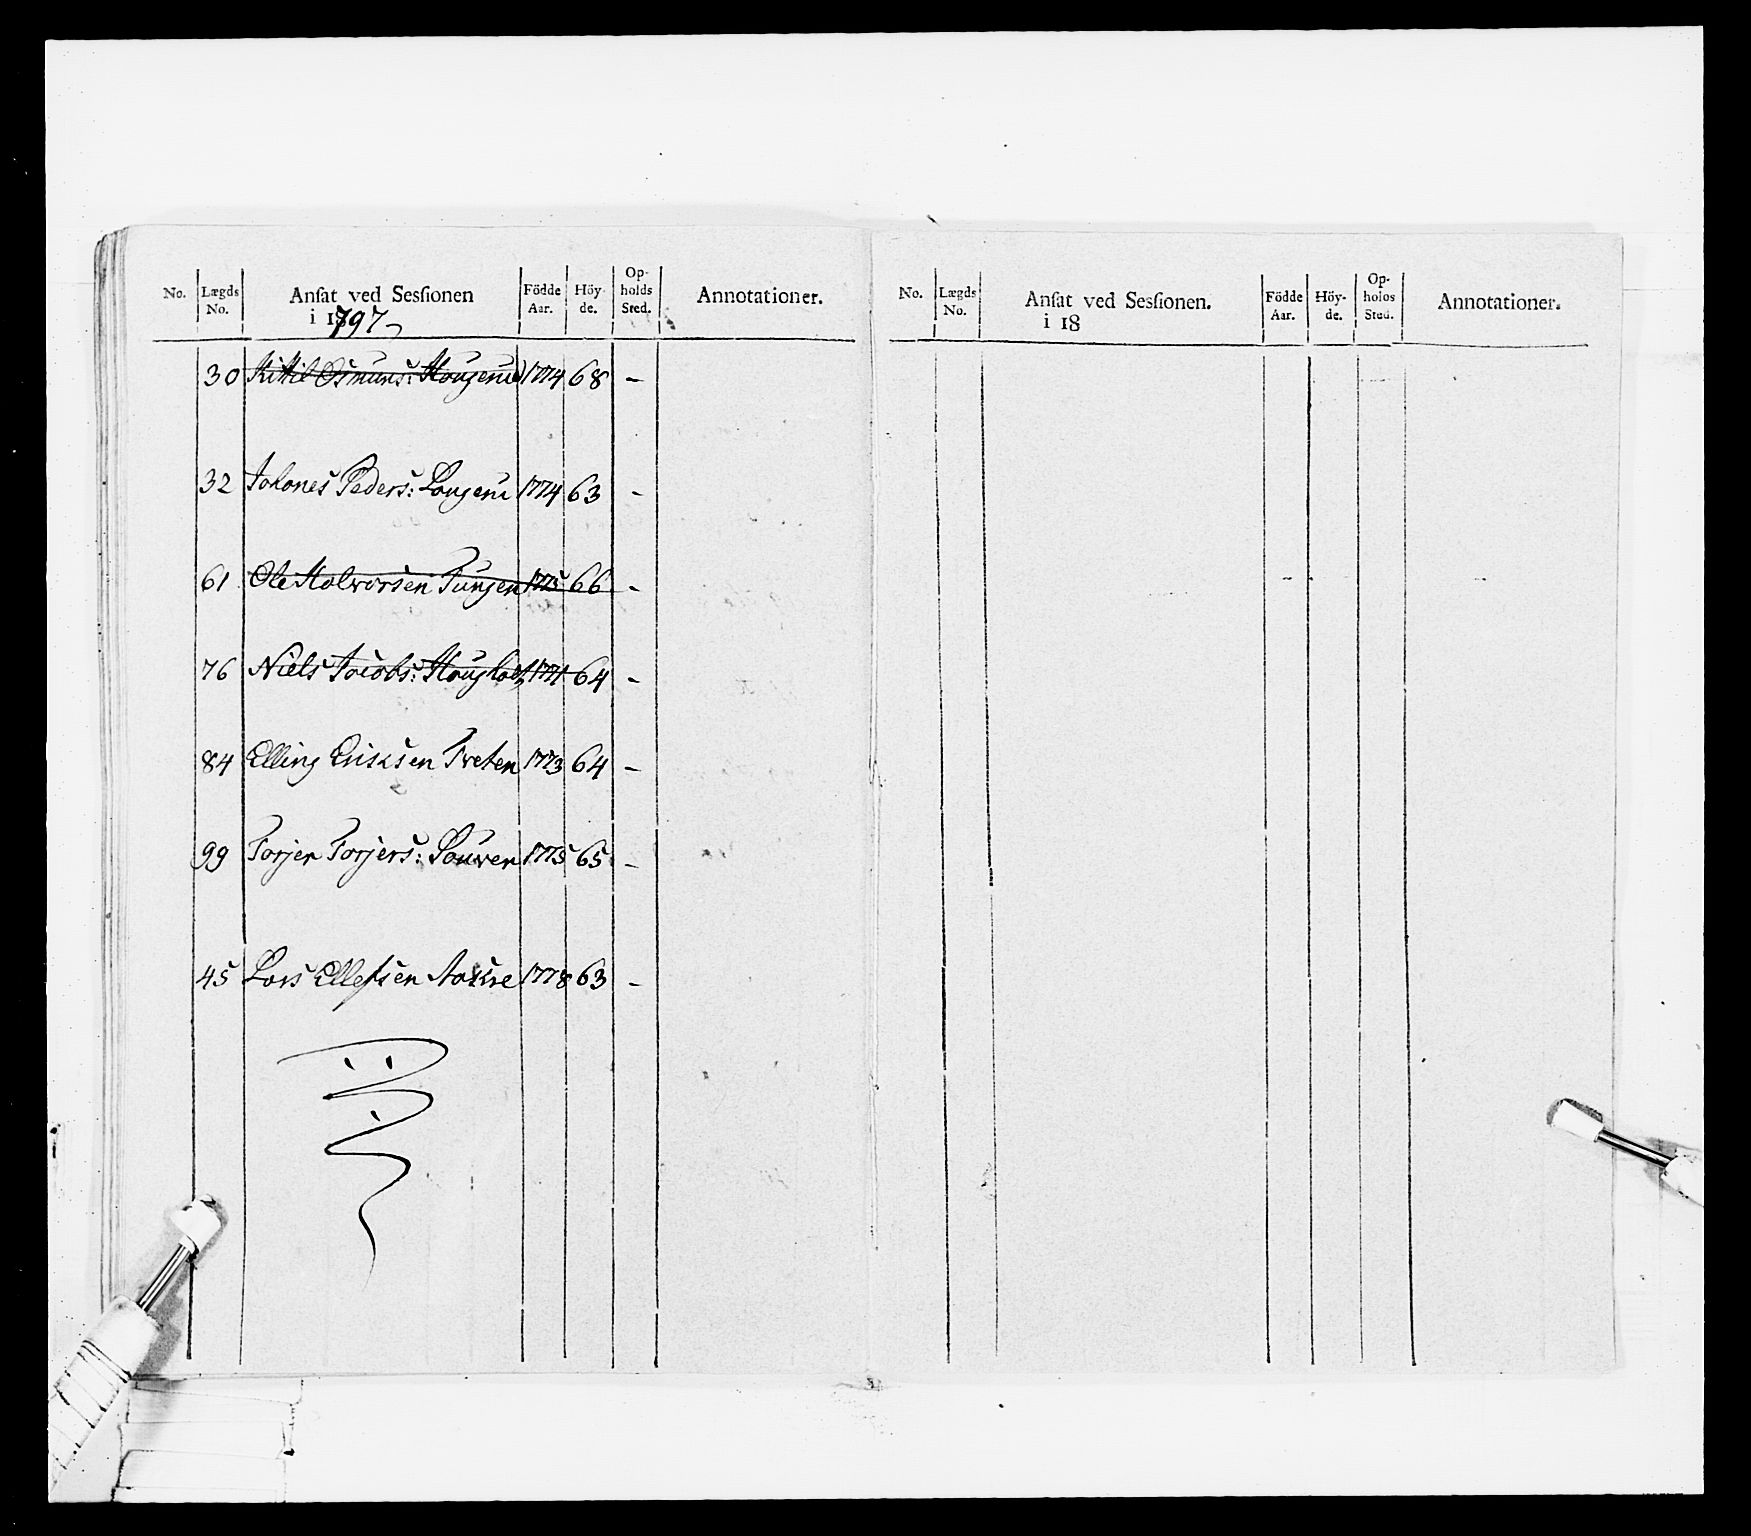 No. Lægds No. Ansat ved Sessionen i 1797 Födde Aar. Höyde. Opholds Sted. Annotationer.
30 Kittil Osmuns: Hougene 1774 68 –
32 Johanes Peders: Lougene 1774 63 –
61 Ole Halvorsen Tungen 1775 66 –
76 Niels Jacobs: Hougholt 1771 64 –
84 Elling Eriksen Treten 1773 64 –
99 Torjer Torjers: Souven 1775 65 –
45 Lars Ellefsen Aaskre 1778 63 –
No. Lægds No. Ansat ved Sessionen. i 18 Födde Aar. Höyde. Opholds Sted. Annotationer.